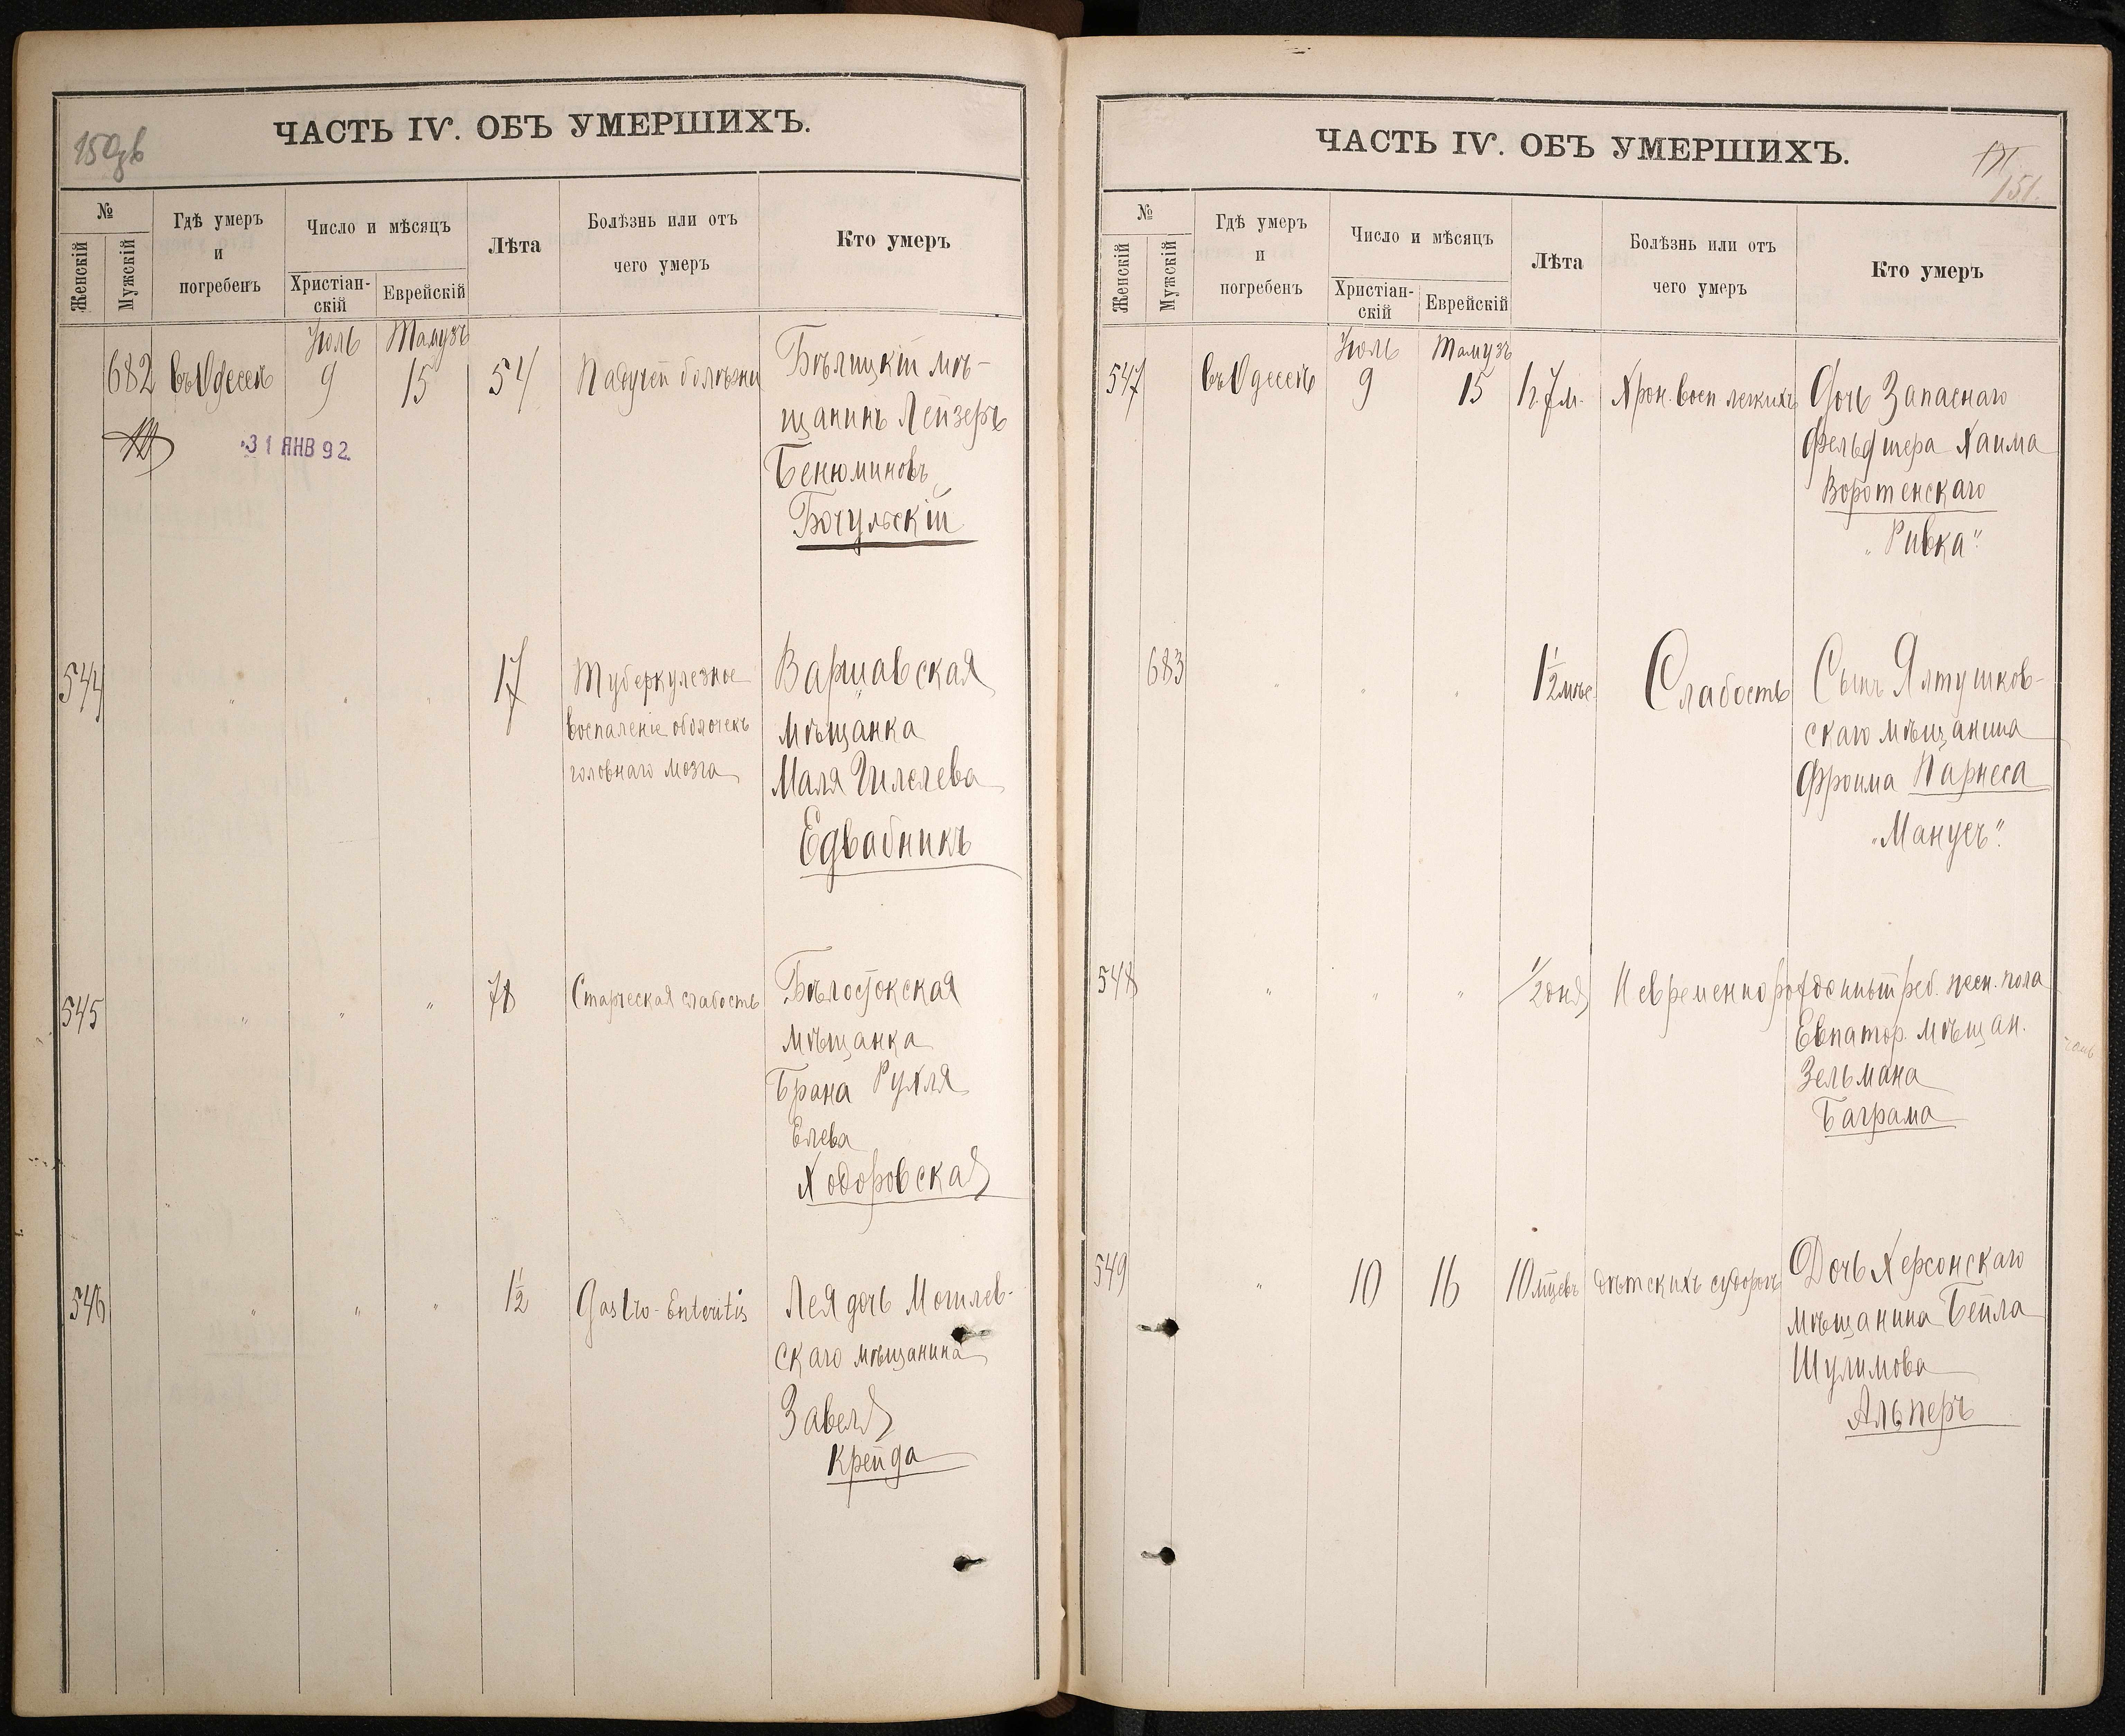 ЧАСТЬ IV. ОБЪ УМЕРШИХЪ.
№
Женскій
Мужскій
Гдѣ умеръ
и
погребенъ
Число и мѣсяцъ
Христіан-
скій
Еврейскій
Лѣта
Болѣзнь или отъ
чего умеръ
Кто умеръ
Іюль Тамузъ
682 въ Одессѣ 9 15 54 Падучей болѣзни Бѣлицкій мѣ-
щанинъ Лейзеръ
Бенюминовъ
Бочульскій
31 ЯНВ 92.
544 " " " 17 Туберкулезное Варшавская
воспаленіе оболочекъ мѣщанка
головнаго мозга Маля
Едвабникъ
545 " " " 78 Старческая слабость Бѣлостокская
мѣщанка
Брана Рухля
Елева
Ходоровская
546 " " " 1½ Gastro-Enteritis Лея дочь Могилев-
скаго мѣщанина
Завеля
Крейда
ЧАСТЬ IV. ОБЪ УМЕРШИХЪ.
151.
№
Женскій
Мужскій
Гдѣ умеръ
и
погребенъ
Число и мѣсяцъ
Христіан-
скій
Еврейскій
Лѣта
Болѣзнь или отъ
чего умеръ
Кто умеръ
Іюль Тамузъ
547 въ Одессѣ 9 15 Хрон. восп легкихъ Дочь Запаснаго
Фельдшера Хаима
Воротенскаго
"Ривка"
683 " " " 1½ мѣс. Слабость Сынъ Ялтушков-
скаго мѣщанина
Фроима Парнеса
"Манусъ"
548 " " " ½ дня Невременнорожденный реб. жен. пола
Евпатор. мѣщан.
Зельмана
Баграма
549 " 10 16 10 мѣцевъ Дѣтскихъ судорогъ Дочь Херсонскаго
мѣщанина Бейла
Шулимова
Альперъ